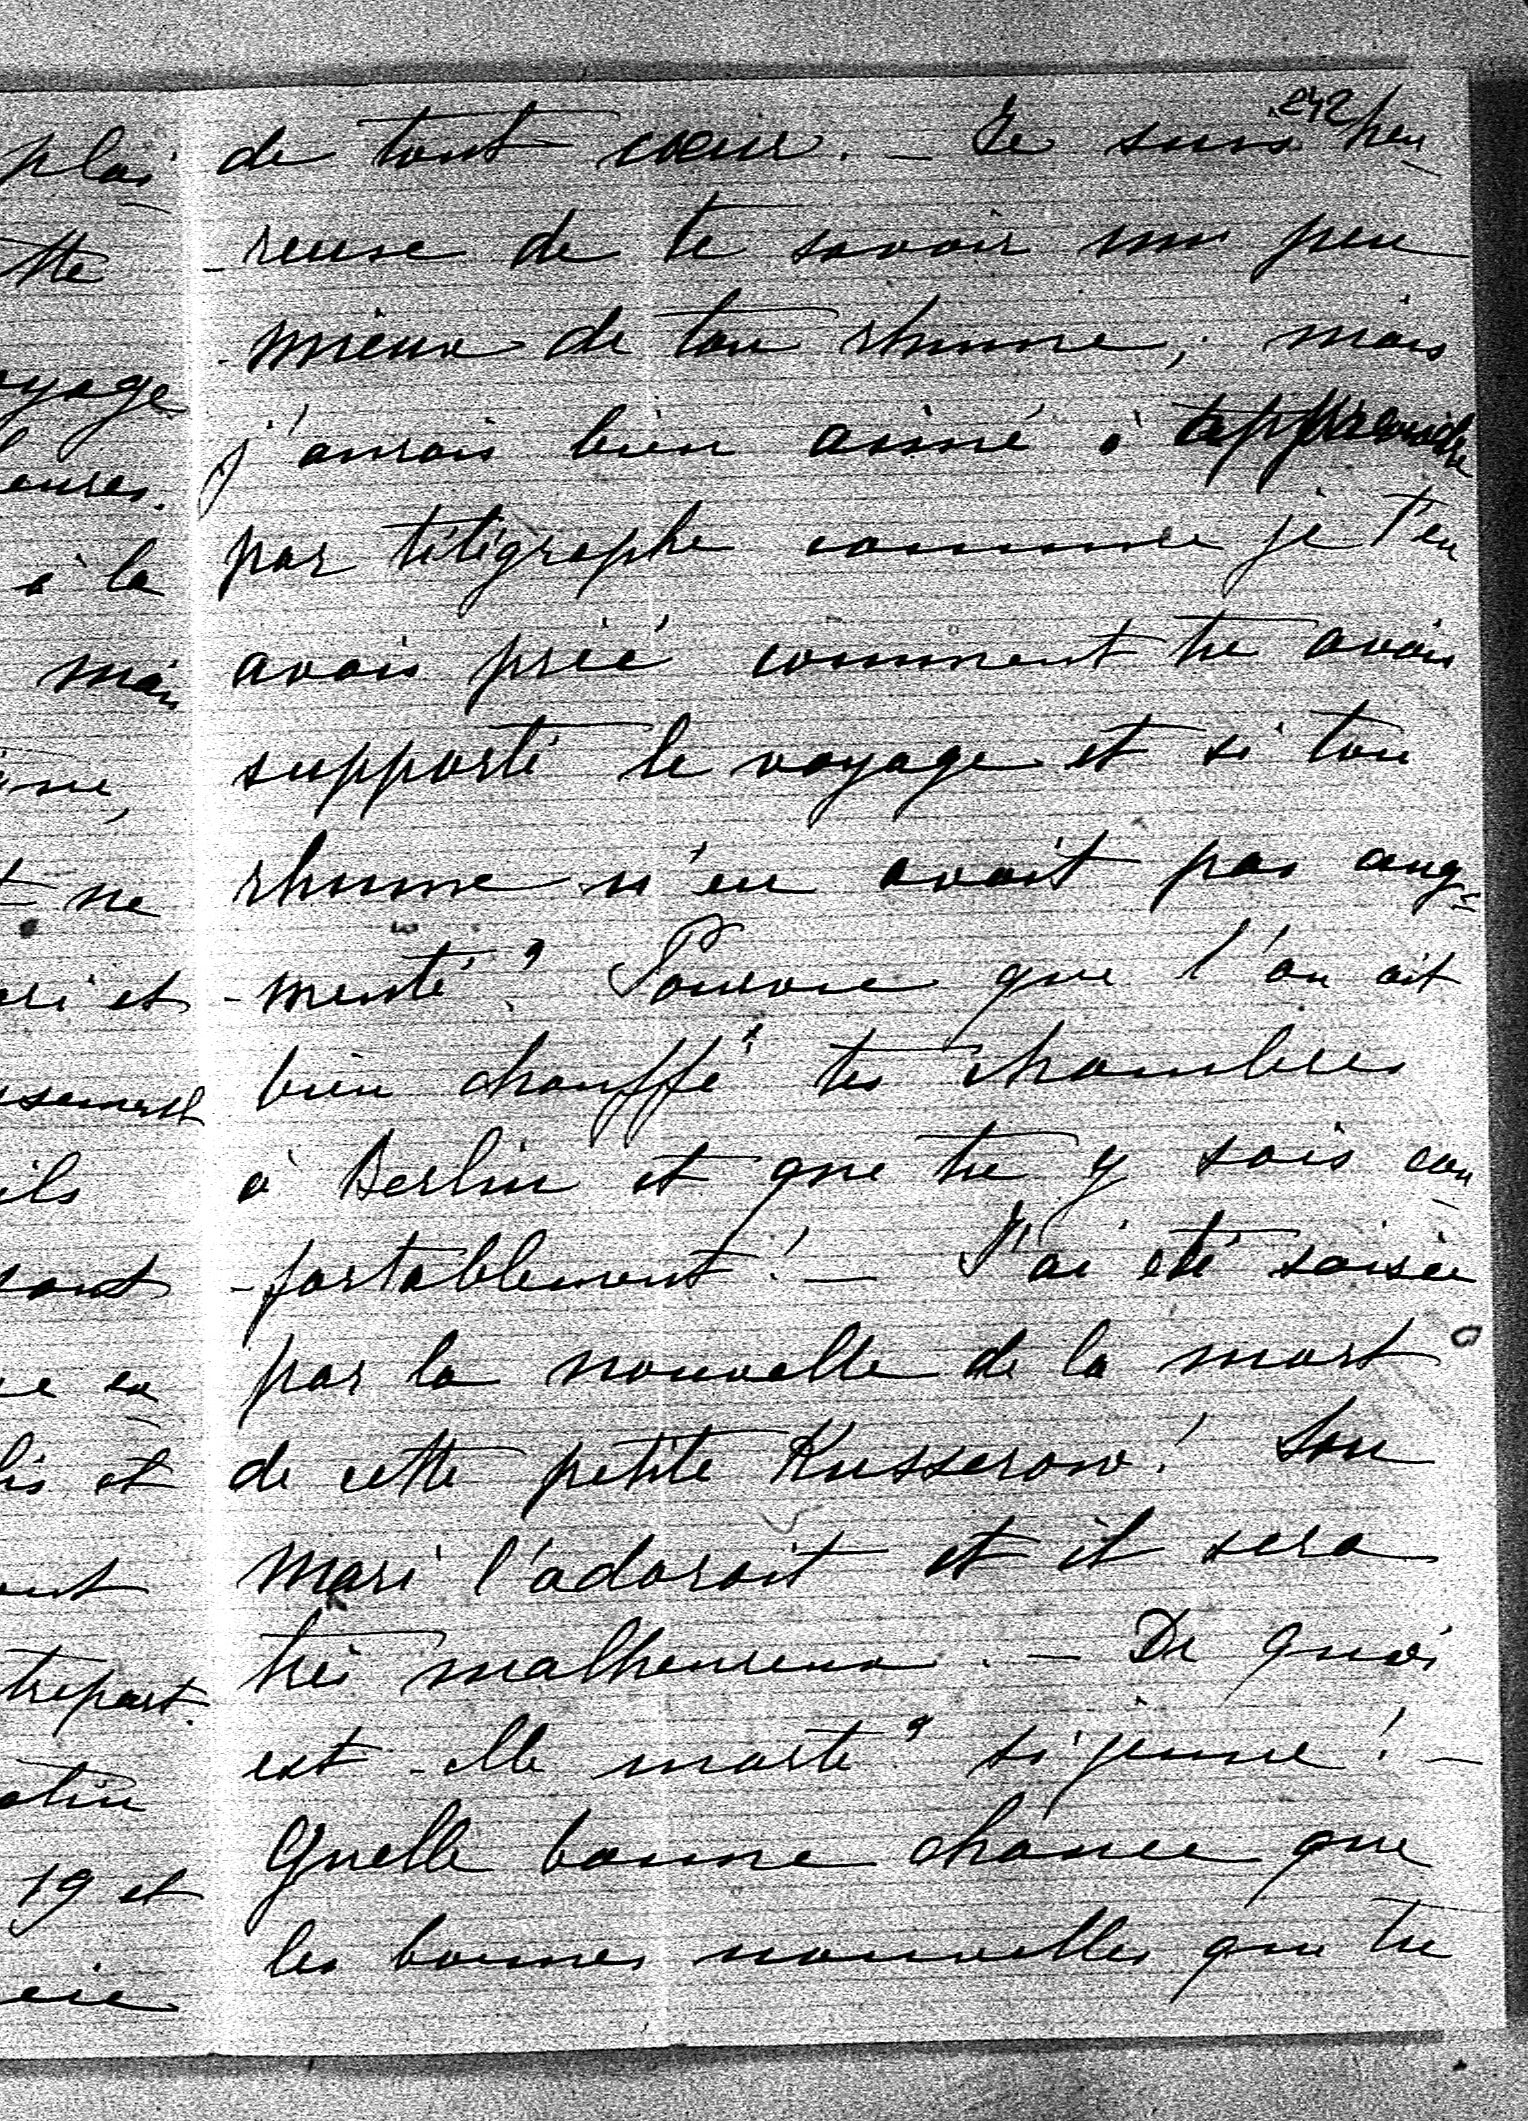 242
de tout coeur. – Je suis heu
-reuse de te savoir un peu
-mieux de ton rhume, mais
j'aurais bien aimé à apprendre
par télégraphe comme je t'en
avais prié comment tu avais
supporté le voyage et si ton
rhume n'en avait pas aug=
-menté? Pourvu que l'on ait
bien chauffé tes chambres
à Berlin et que tu y sois con
-fortablement! – J'ai été saisie
par la nouvelle de la mort
de cette petite Kusserow! Son
mari l'adorait et il sera
très malheureux. – De quoi
est-elle morte? si jeune! –
Quelle bonne chance que
les bonnes nouvelles que tu
plai
tte
oyage
à la
mais
t ne
et
sement
ils
sont
et
trepart.
19 et